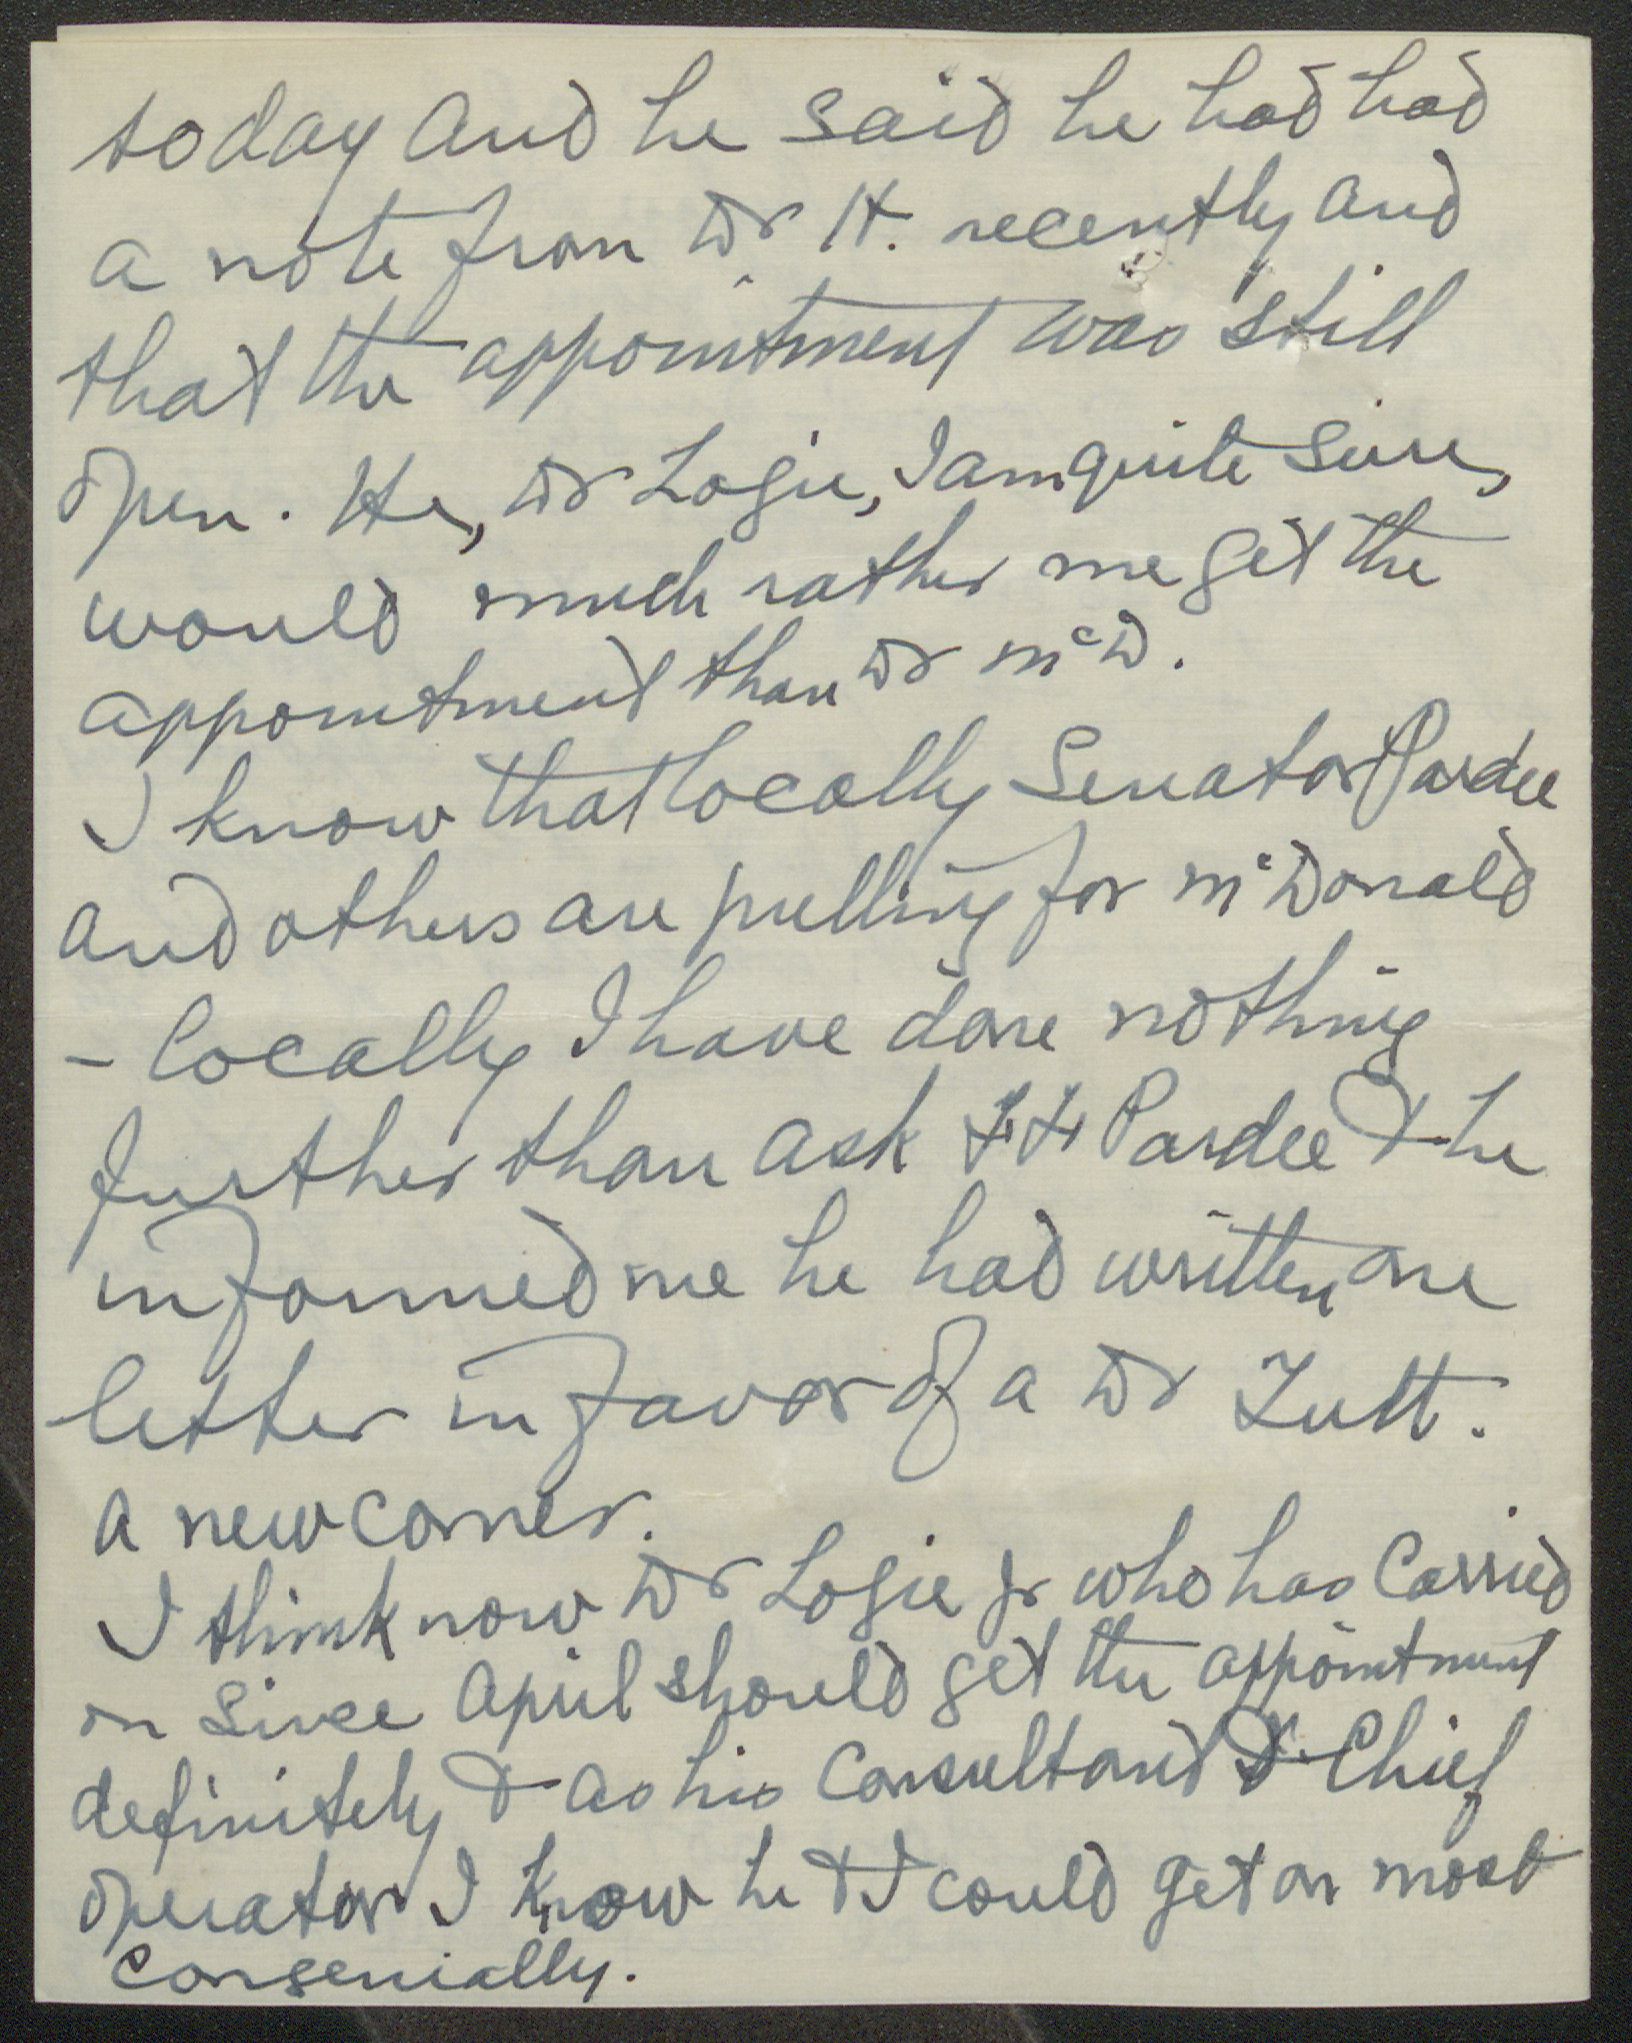 today and he said he had had
a note from Dr H. recently and
that the appointment was still
open. He, Dr Logie, I am quite sure,
would much rather me get the
appointment than Dr McD.
I know that locally Senator Pardee
and others are pulling for McDonald
- locally I have done nothing
further than ask Pardee & he
informed me he had written one
letter in favor of a Dr Tutt.
a newcomer.
I think now Dr Logie Jr who has carried
on since April should get the appointment
definitely & as his Consultant & Chief
operator I know he & I could get on most
congenially.